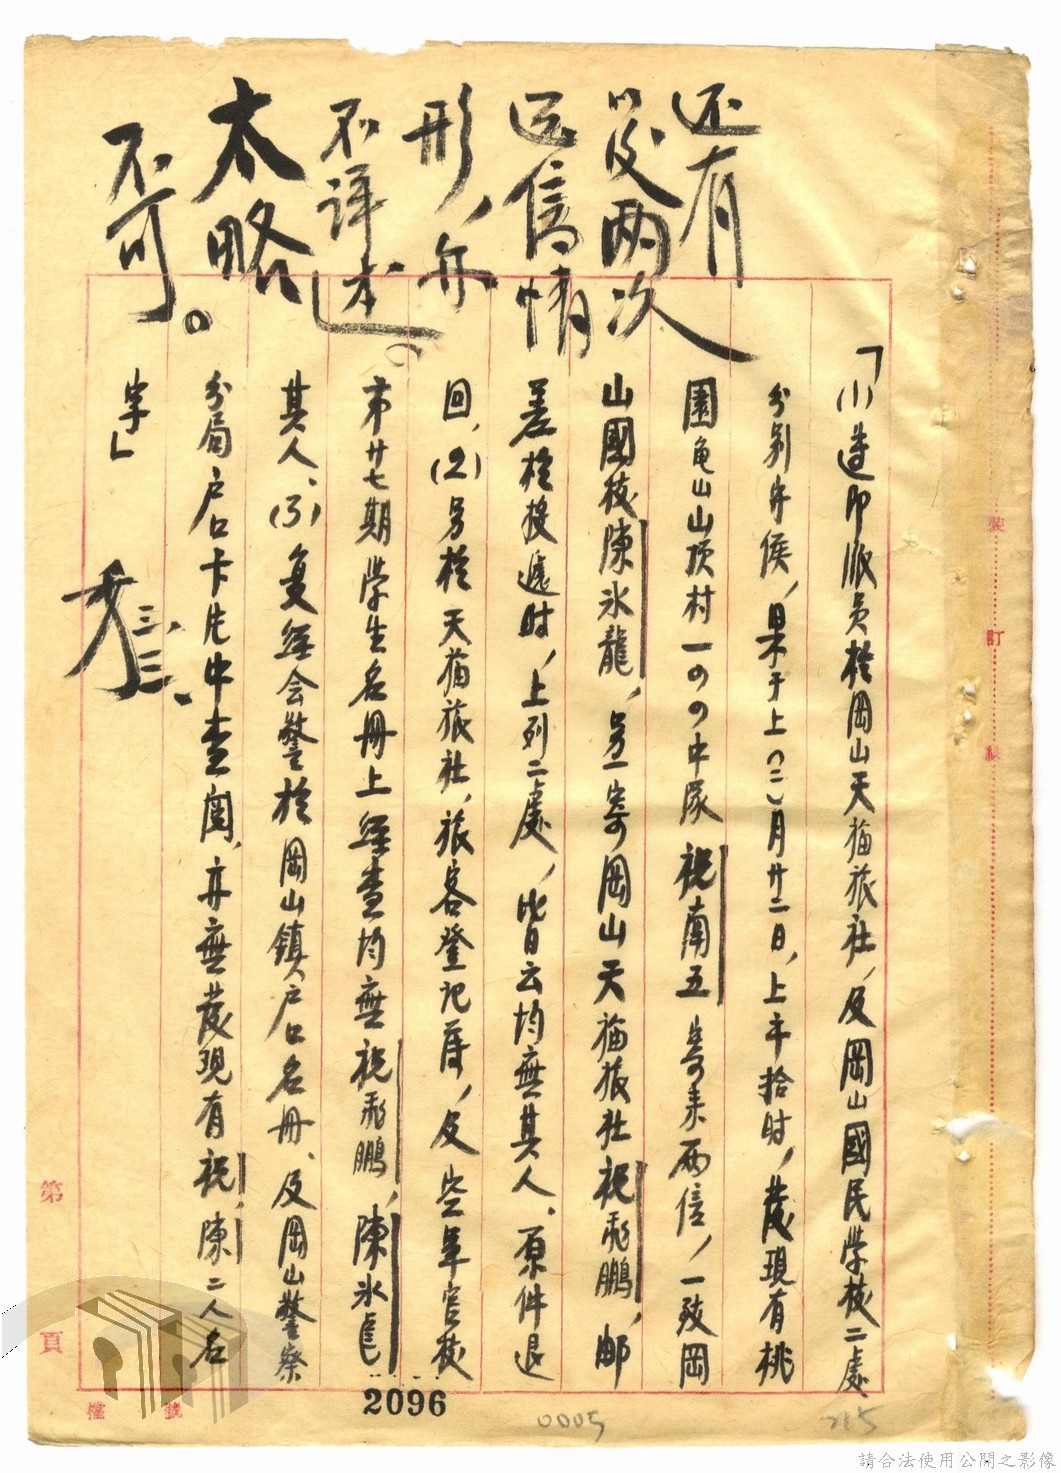 还有
以及两次
送信情
形，亦
不详述。
太略
不可。
「(1)遵即派员於岡山天福旅社，及岡山國民学校二處
分别守候，果于上(二)月廿二日，上午拾时，發现有桃
園龟山山顶村一〇〇中队祝南五寄来两信，一致岡
山國校陳氷龍，另一寄岡山天福旅社祝飛鵬，邮
差於投遞时，上列二處，皆云均無其人，原件退
回，(2)另於天福旅社，旅客登记簿，及空軍官校
第廿七期学生名册上經查均無祝飛鵬，陳氷龍
其人、(3)复經会警於岡山鎮户口名册、及岡山警察
分局户口卡片中查閲，亦無發现有祝，陳二人名
字」
三，
三、
裝
訂
線
第
頁
檔
號
2096
0005
215
請合法使用公開之影像